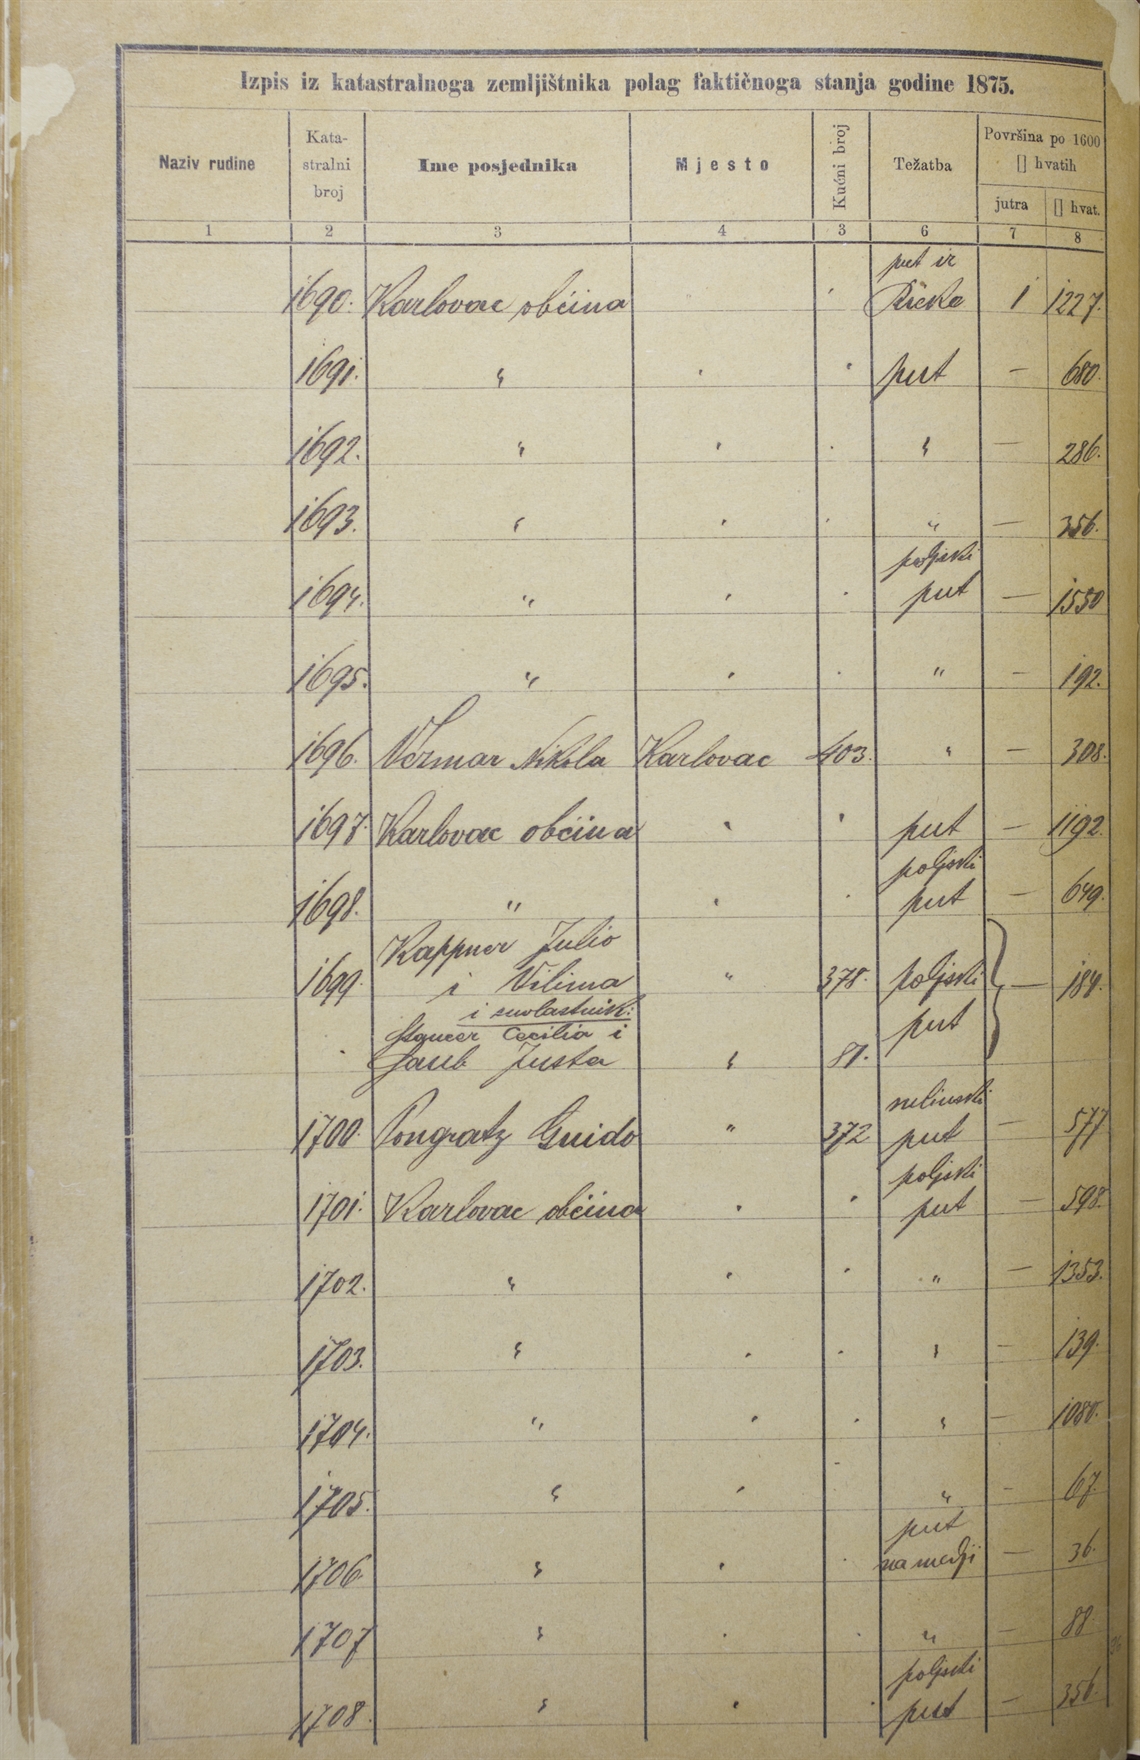 Izpis iz katastralnoga zemljištnika polag faktičnoga stanja godine 1875.
Naziv rudine Kata- stralni broj Ime posjednika Mjesto Kućni broj Težatba Površina po 1600 [] hvatih
jutra [] hvat.
1 2 3 4 3 6 7 8
put iz
1690. Karlovac občina Rieka 1 1227.
1691. " " " put — 680.
1692. " " " " — 286.
1693. " " " " — 356.
poljski
1694. " " " put — 1550
1695. " " " " — 192.
1696. Vermar Nikola Karlovac 403. " — 308.
1697. Karlovac občina " " put — 1192.
poljski
1698. " " " put — 649.
Kappner Julio
1699. i Vilima " 378. poljski — 184.
i suvlastnik:
put
Cecilia i
Justa " 81.
1700. Pongratz Guido " 372 put — 577
poljski
1701. Karlovac občina " " put — 598.
1702. " " " " — 1353.
1703. " " " " — 139.
1704. " " " " — 1080.
1705. " " " " — 67.
put
1706 " " " na medji — 36.
1707 " " " " — 88.
poljski
1708. " " " put — 356.